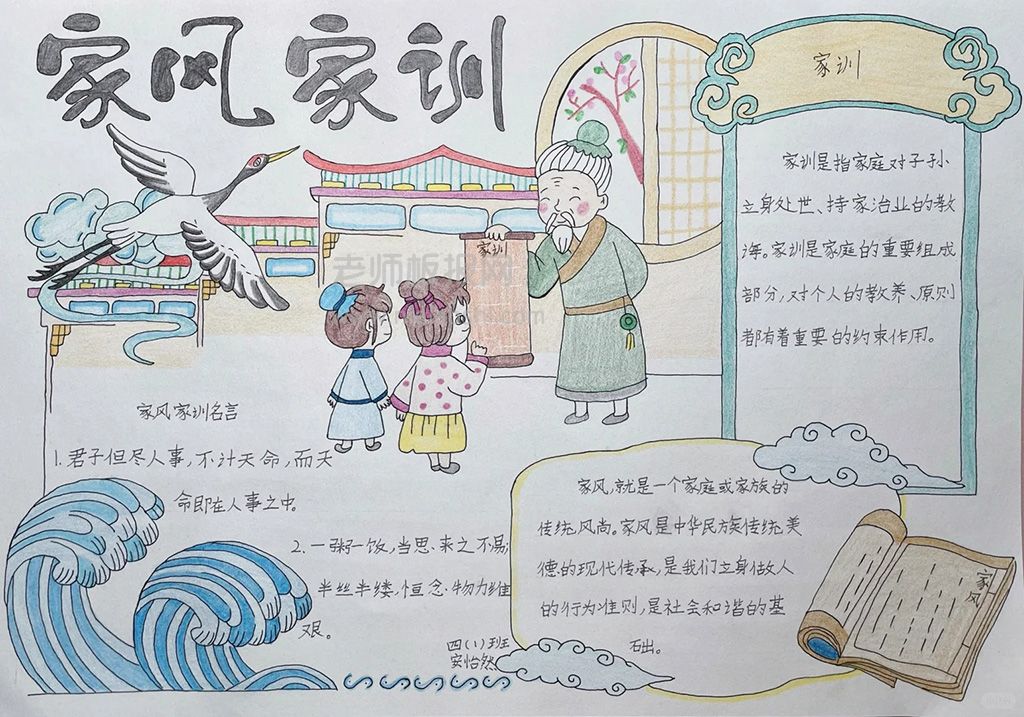 家风家训
家训
家训是指家庭对子孙
立身处世、持家治业的教
诲。家训是家庭的重要组成
部分,对个人的教养、原则
都有着重要的约束作用。
家训
老师板报网
家风家训名言
1.君子但尽人事,不计天命,而天
命即在人事之中。
2.一粥一饭,当思来之不易;
半丝半缕,恒念物力维
艰。
四(1)班
安怡然
家风,就是一个家庭或家族的
传统风尚。家风是中华民族传统美
德的现代传承,是我们立身做人
的行为准则,是社会和谐的基
石出。
家风